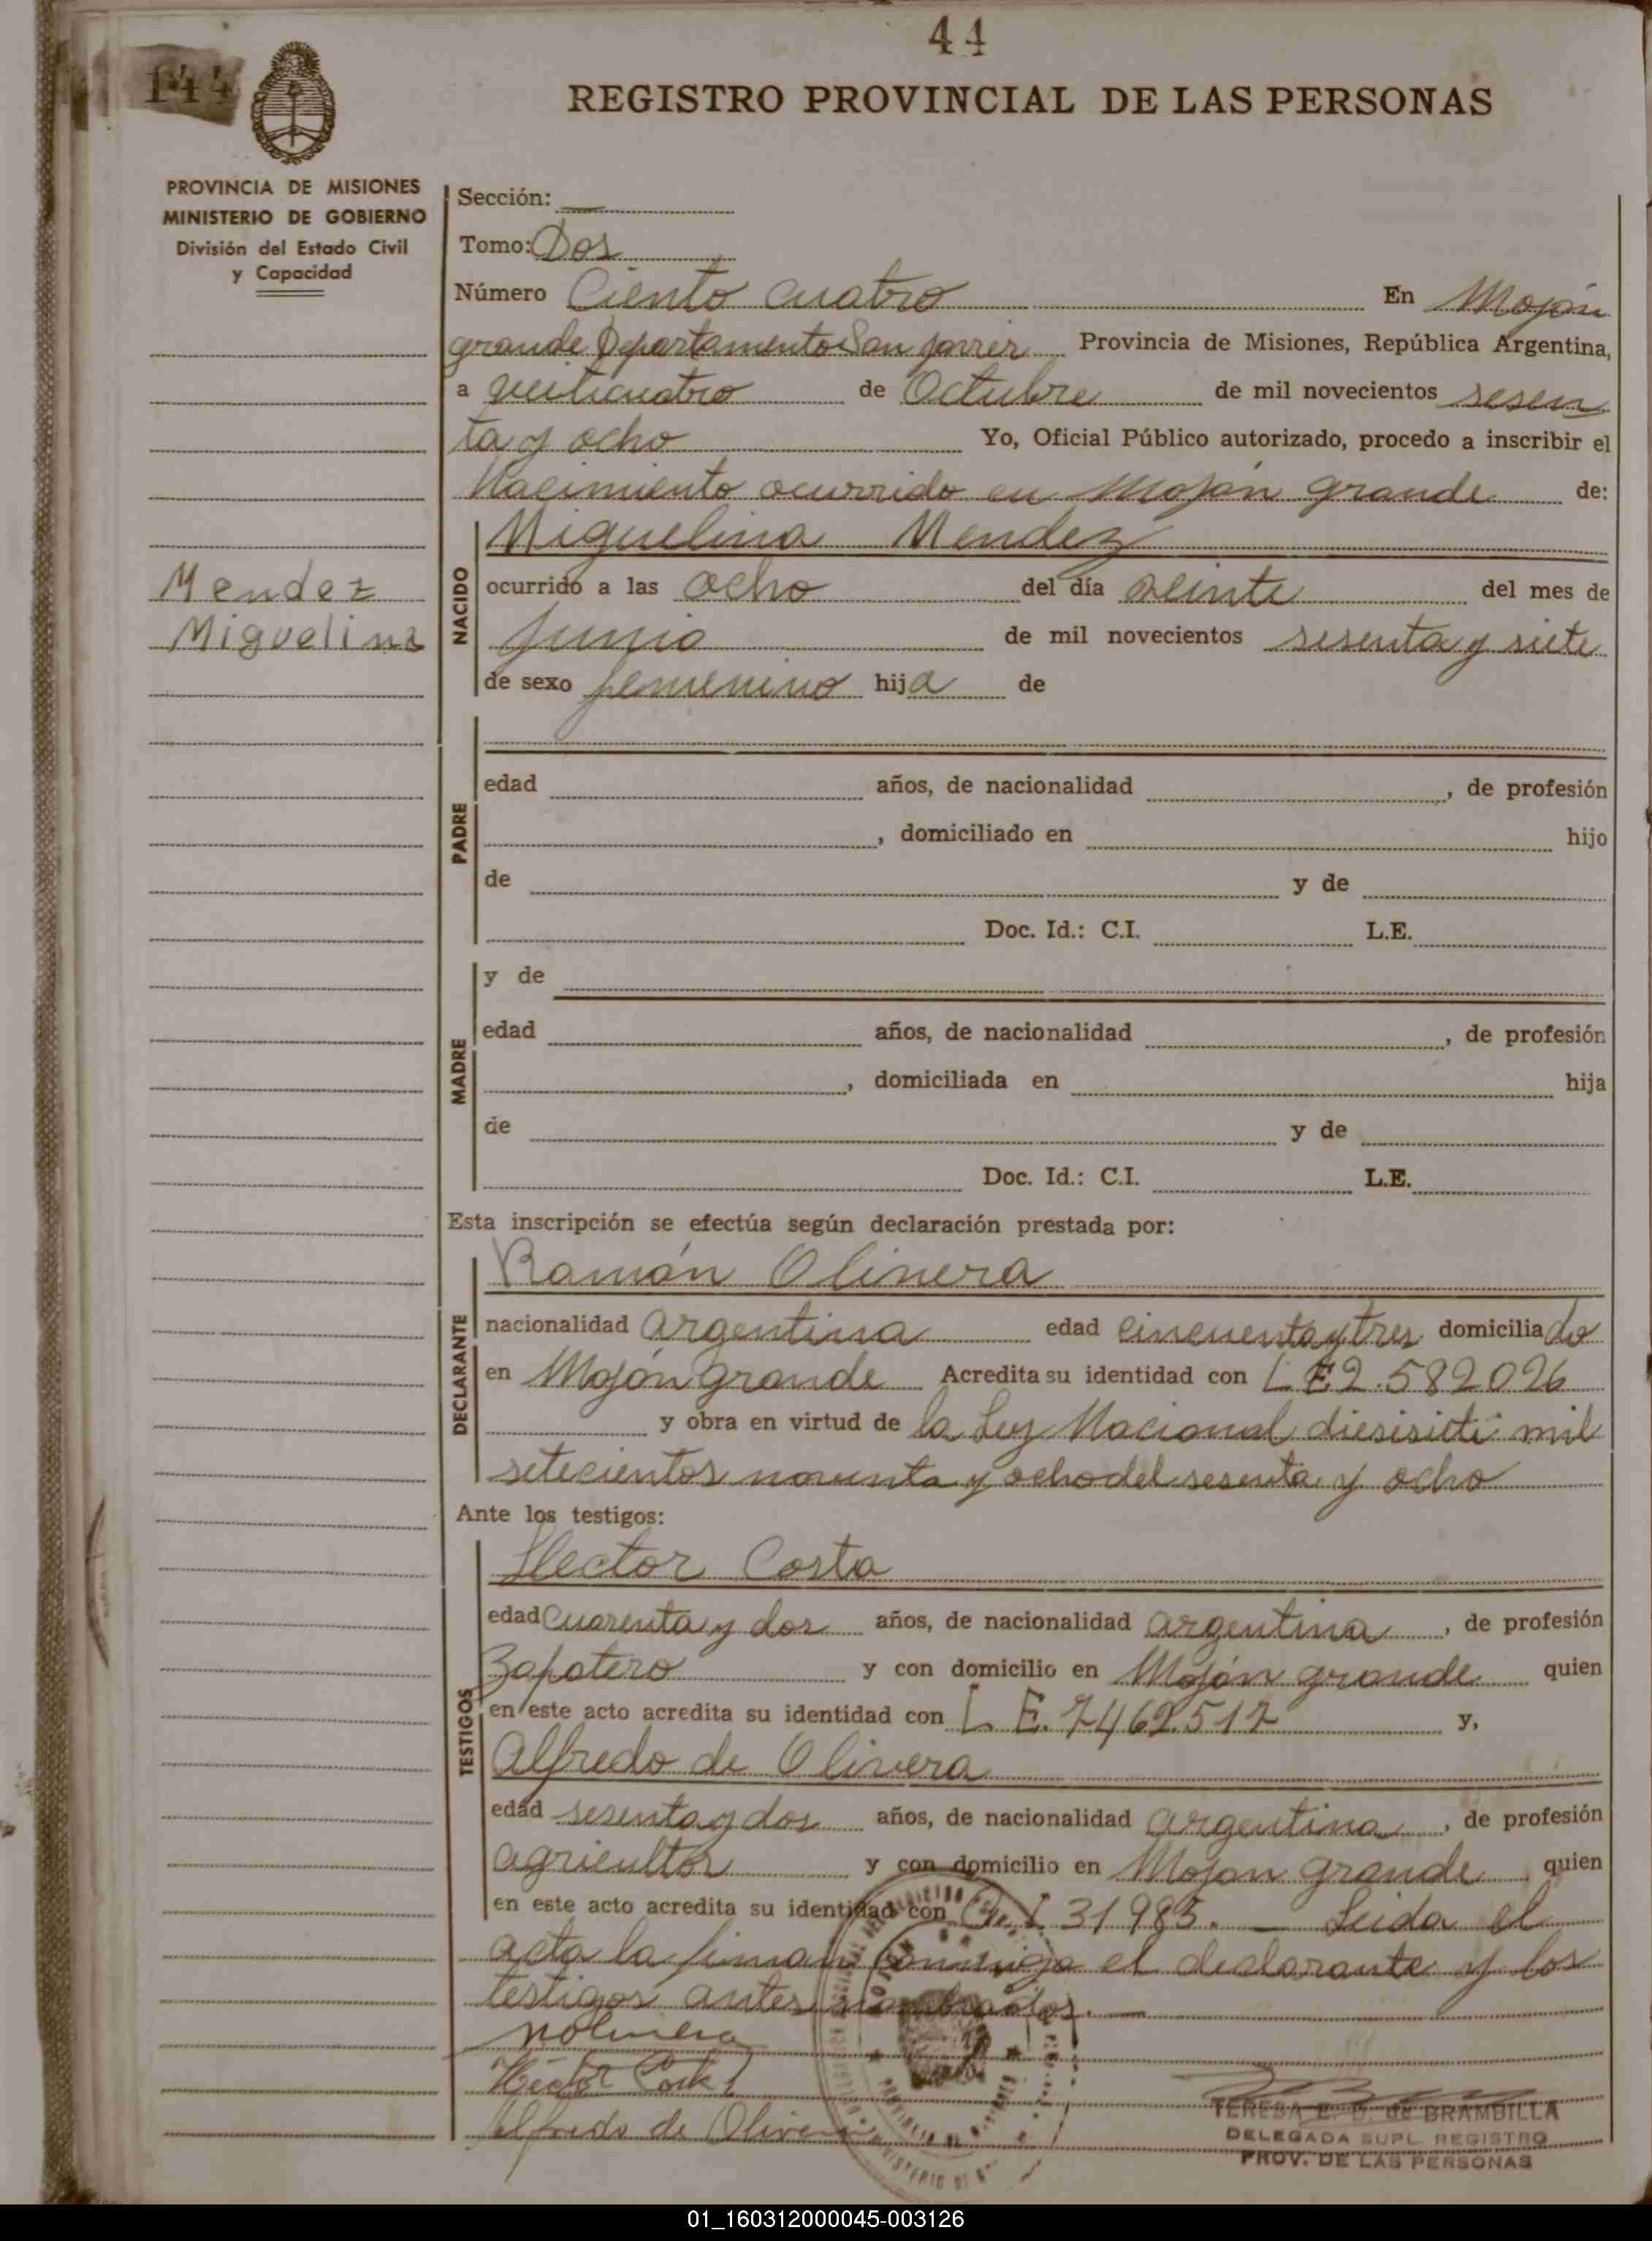 44
144
REGISTRO PROVINCIAL DE LAS PERSONAS
PROVINCIA DE MISIONES
MINISTERIO DE GOBIERNO
División del Estado Civil
y Capacidad
Sección: —
Tomo: Dos
Número Ciento cuatro En Mojón
grande Departamento San Javier Provincia de Misiones, República Argentina,
a veinticuatro de Octubre de mil novecientos sesen
ta y ocho Yo, Oficial Público autorizado, procedo a inscribir el
Nacimiento ocurrido en Mojón grande de:
Miguelina Mendez
Mendez
Miguelina
NACIDO
ocurrido a las ocho del día veinte del mes de
Junio de mil novecientos sesenta y siete
de sexo femenino hija de
PADRE
edad años, de nacionalidad , de profesión
, domiciliado en hijo
de y de
Doc. Id.: C.I. L.E.
y de
MADRE
edad años, de nacionalidad , de profesión
, domiciliada en hija
de y de
Doc. Id.: C.I. L.E.
Esta inscripción se efectúa según declaración prestada por:
Ramón Olivera
DECLARANTE
nacionalidad argentina edad cincuenta y tres domiciliado
en Mojón grande Acredita su identidad con L E 2.582026
y obra en virtud de la Ley Nacional diesisiete mil
setecientos noventa y ocho del sesenta y ocho
Ante los testigos:
Hector Costa
TESTIGOS
edad Cuarenta y dos años, de nacionalidad argentina, de profesión
Zapatero y con domicilio en Mojón grande quien
en este acto acredita su identidad con L. E. 7462.517 y,
Alfredo de Olivera
edad sesenta y dos años, de nacionalidad argentina, de profesión
agricultor y con domicilio en Mojon grande quien
en este acto acredita su identidad con I 31983. — Leida el
acta la firman conmigo el declarante y los
testigos antes nombrados. —
Hector Costa
Alfredo de Olivera
TERESA E. D. de BRAMBILLA
DELEGADA SUPL. REGISTRO
PROV. DE LAS PERSONAS
01_160312000045-003126